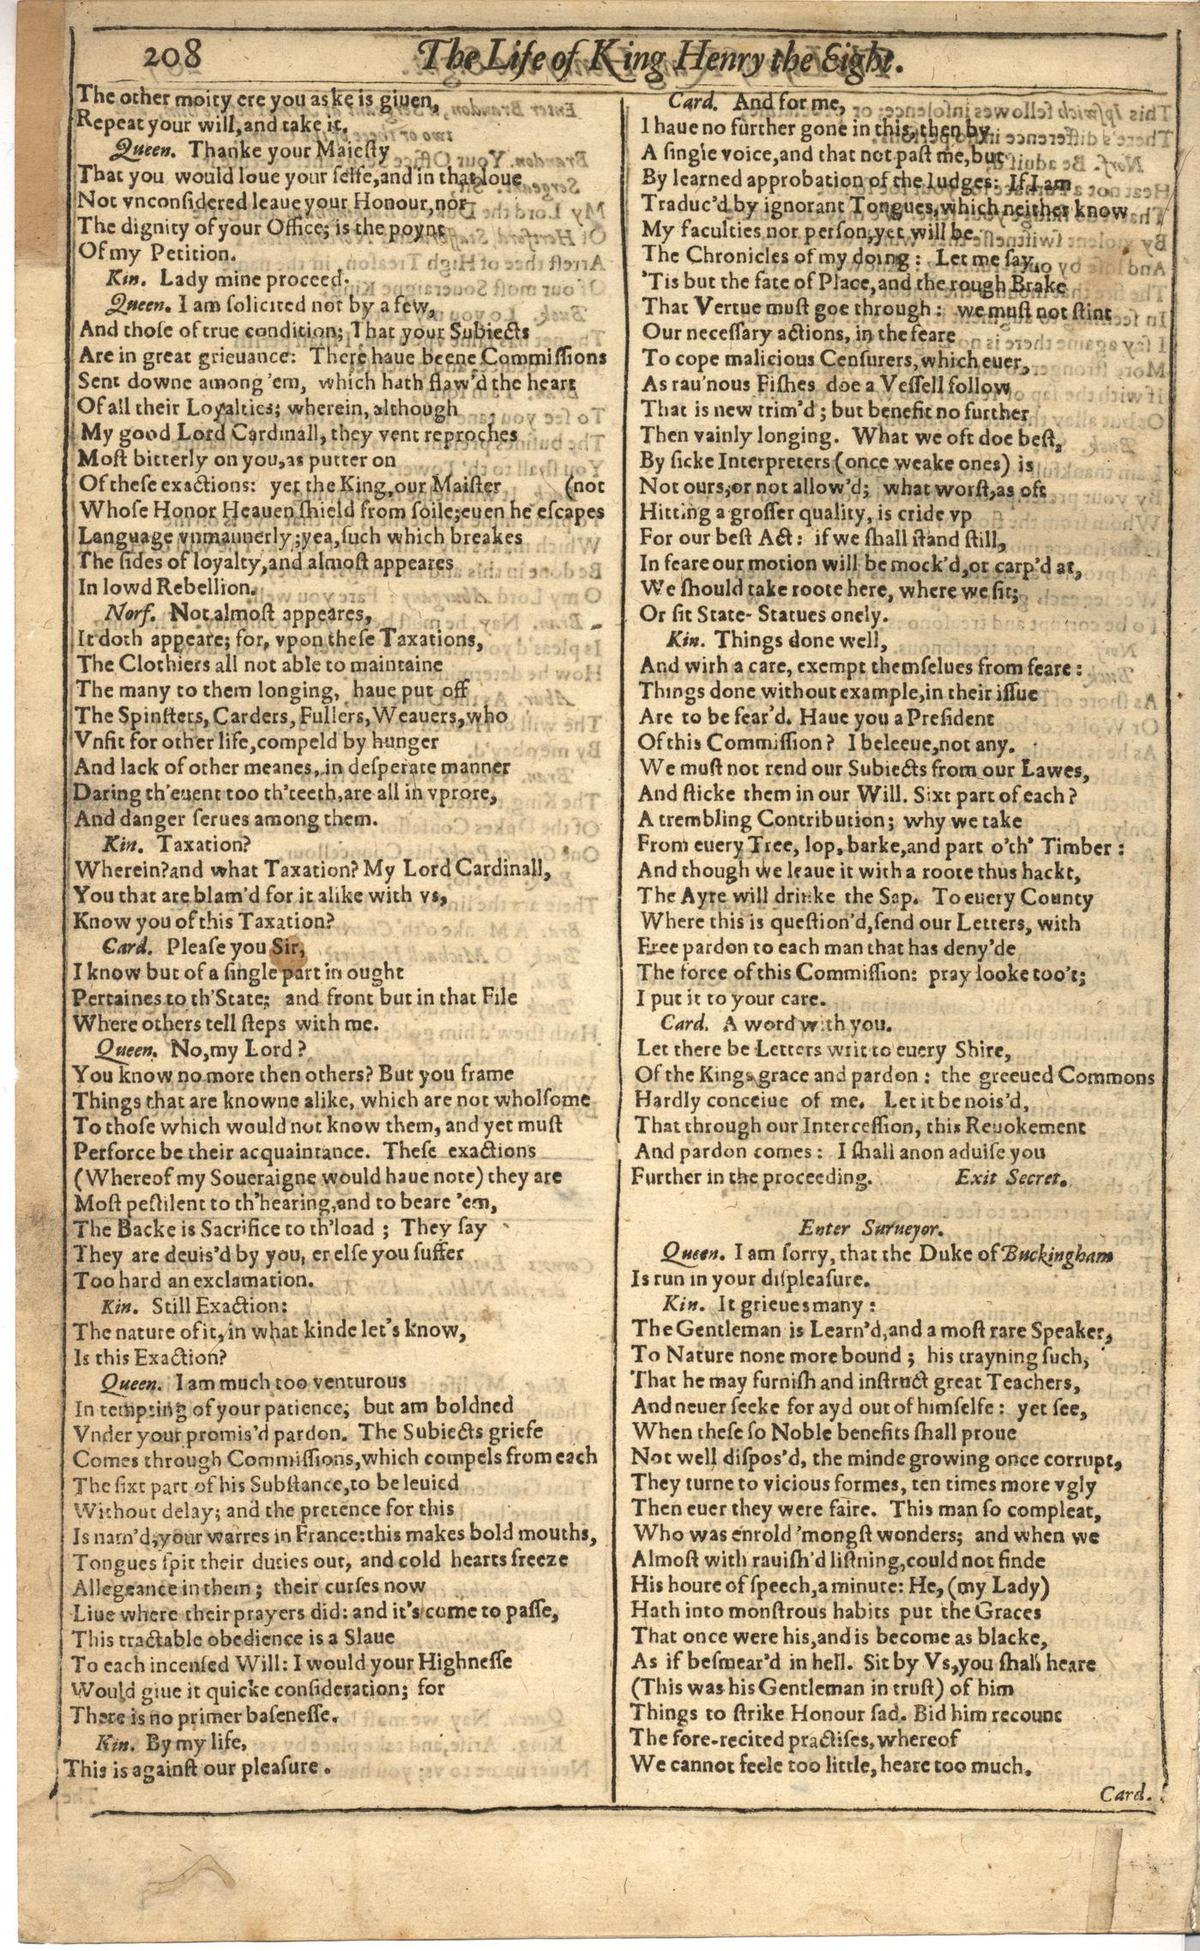 208
The Life of King Henry the Eight.
The other moity ere you aske is giuen,
Repeat your will,and take it.
Queen. Thanke your Maiesty
That you would loue your selfe,and in that loue
Not vnconsidered leaue your Honour,nor
The dignity of your Office; is the poynt
Of my Petition.
Kin. Lady mine proceed.
Queen. I am solicited not by a few,
And those of true condition; That your Subiects
Are in great grieuance: There haue beene Commissions
Sent downe among 'em, which hath flaw'd the heart
Of all their Loyalties; wherein, although
My good Lord Cardinall, they vent reproches
Most bitterly on you,as putter on
Of these exactions: yet the King,our Maister (not
Whose Honor Heauen shield from soile;euen he escapes
Language vnmannerly;yea,such which breakes
The sides of loyalty,and almost appeares
In lowd Rebellion.
Norf. Not almost appeares,
It doth appeare; for, vpon these Taxations,
The Clothiers all not able to maintaine
The many to them longing, haue put off
The Spinsters, Carders, Fullers, Weauers,who
Vnfit for other life,compeld by hunger
And lack of other meanes, in desperate manner
Daring th'euent too th'teeth,are all in vprore,
And danger serues among them.
Kin. Taxation?
Wherein?and what Taxation? My Lord Cardinall,
You that are blam'd for it alike with vs,
Know you of this Taxation?
Card. Please you Sir,
I know but of a single part in ought
Pertaines to th'State; and front but in that File
Where others tell steps with me.
Queen. No,my Lord?
You know no more then others? But you frame
Things that are knowne alike, which are not wholsome
To those which would not know them, and yet must
Perforce be their acquaintance. These exactions
(Whereof my Soueraigne would haue note) they are
Most pestilent to th'hearing,and to beare 'em,
The Backe is Sacrifice to th'load ; They say
They are deuis'd by you, er else you suffer
Too hard an exclamation.
Kin. Still Exaction:
The nature of it, in what kinde let's know,
Is this Exaction?
Queen. I am much too venturous
In tempting of your patience; but am boldned
Vnder your promis'd pardon. The Subiects griefe
Comes through Commissions,which compels from each
The sixt part of his Substance,to be leuied
Without delay; and the pretence for this
Is nam'd,your warres in France:this makes bold mouths,
Tongues spit their duties out, and cold hearts freeze
Allegeance in them ; their curses now
Liue where their prayers did: and it's come to passe,
This tractable obedience is a Slaue
To each incensed Will: I would your Highnesse
Would giue it quicke consideration; for
There is no primer basenesse.
Kin. By my life,
This is against our pleasure.
Card. And for me,
I haue no further gone in this,then by
A single voice,and that not past me,but
By learned approbation of the Iudges: If I am
Traduc'd by ignorant Tongues,which neither know
My faculties nor person,yet will be
The Chronicles of my doing : Let me say,
'Tis but the fate of Place,and the rough Brake
That Vertue must goe through : we must not stint
Our necessary actions, in the feare
To cope malicious Censurers,which euer,
As rau'nous Fishes doe a Vessell follow
That is new trim'd ; but benefit no further
Then vainly longing. What we oft doe best,
By sicke Interpreters (once weake ones) is
Not ours,or not allow'd; what worst,as oft
Hitting a grosser quality, is cride vp
For our best Act: if we shall stand still,
In feare our motion will be mock'd,or carp'd at,
We should take roote here, where we sit;
Or sit State-Statues onely.
Kin. Things done well,
And with a care, exempt themselues from feare :
Things done without example,in their issue
Are to be fear'd. Haue you a President
Of this Commission? I beleeue,not any.
We must not rend our Subiects from our Lawes,
And sticke them in our Will. Sixt part of each?
A trembling Contribution; why we take
From euery Tree, lop, barke,and part o'th' Timber :
And though we leaue it with a roote thus hackt,
The Ayre will drinke the Sap. To euery County
Where this is question'd,send our Letters, with
Free pardon to each man that has deny'de
The force of this Commission: pray looke too't;
I put it to your care.
Card. A word with you.
Let there be Letters writ to euery Shire,
Of the Kings grace and pardon : the greeued Commons
Hardly conceiue of me. Let it be nois'd,
That through our Intercession, this Reuokement
And pardon comes : I shall anon aduise you
Further in the proceeding. Exit Secret.
Enter Surueyor.
Queen. I am sorry, that the Duke of Buckingham
Is run in your displeasure.
Kin. It grieues many :
The Gentleman is Learn'd,and a most rare Speaker,
To Nature none more bound ; his trayning such,
That he may furnish and instruct great Teachers,
And neuer seeke for ayd out of himselfe : yet see,
When these so Noble benefits shall proue
Not well dispos'd, the minde growing once corrupt,
They turne to vicious formes, ten times more vgly
Then euer they were faire. This man so compleat,
Who was enrold 'mongst wonders; and when we
Almost with rauish'd listning,could not finde
His houre of speech,a minute: He, (my Lady)
Hath into monstrous habits put the Graces
That once were his,and is become as blacke,
As if besmear'd in hell. Sit by Vs,you shall heare
(This was his Gentleman in trust) of him
Things to strike Honour sad. Bid him recount
The fore-recited practises, whereof
We cannot feele too little, heare too much.
Card.